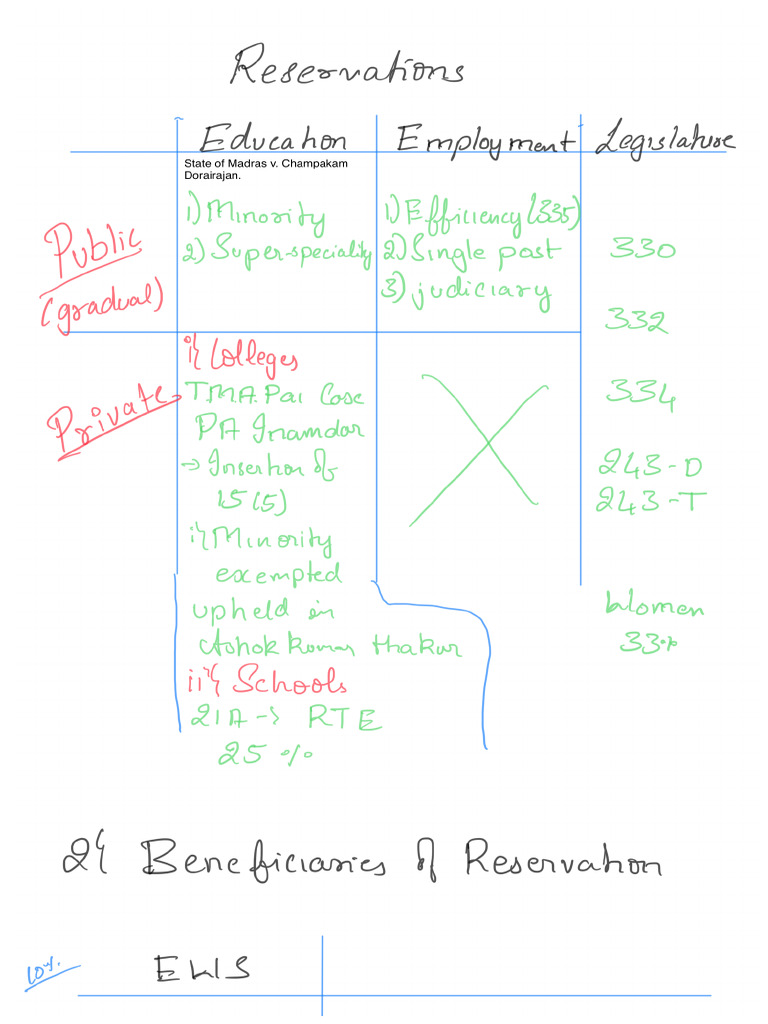 Reservations
Education Employment Legislature
State of Madras v. Champakam
Dorairajan.
Public
(gradual)
1) Minority
2) Super-speciality
1) Efficiency (335)
2) Single post
3) judiciary
330
332
334
243-D
243-T
Women
33%
Private
i) Colleges
TMA Pai Case
PA Inamdar
→ Insertion of
15(5)
i) Minority
exempted
upheld in
Ashok Kumar Thakur
ii) Schools
21A → RTE
25 %
2) Beneficiaries of Reservation
10%
EWS